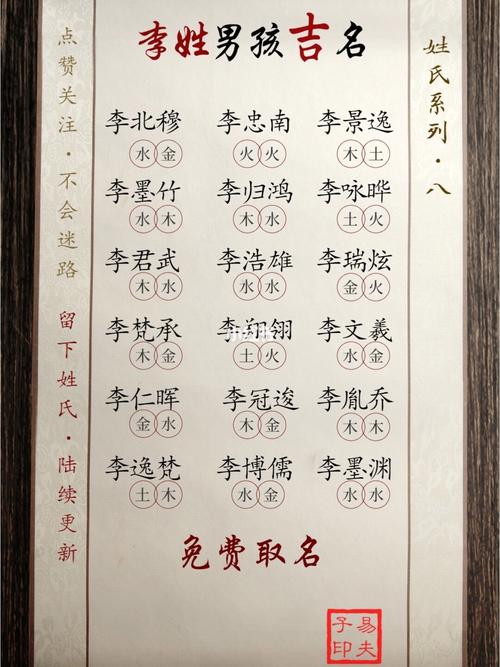 李姓男孩吉名
姓氏系列·八
点赞关注·不会迷路
留下姓氏·陆续更新
李北穆 李忠南 李景逸
水金 火火 木土
李墨竹 李归鸿 李咏晔
水木 木水 土火
李君武 李浩雄 李瑞炫
木水 水水 金火
李梵承 李翎 李文羲
木金 土火 水金
李仁晖 李冠逡 李胤乔
金水 木金 木木
李逸梵 李博儒 李墨渊
土木 水金 水水
免费取名
易夫
子印